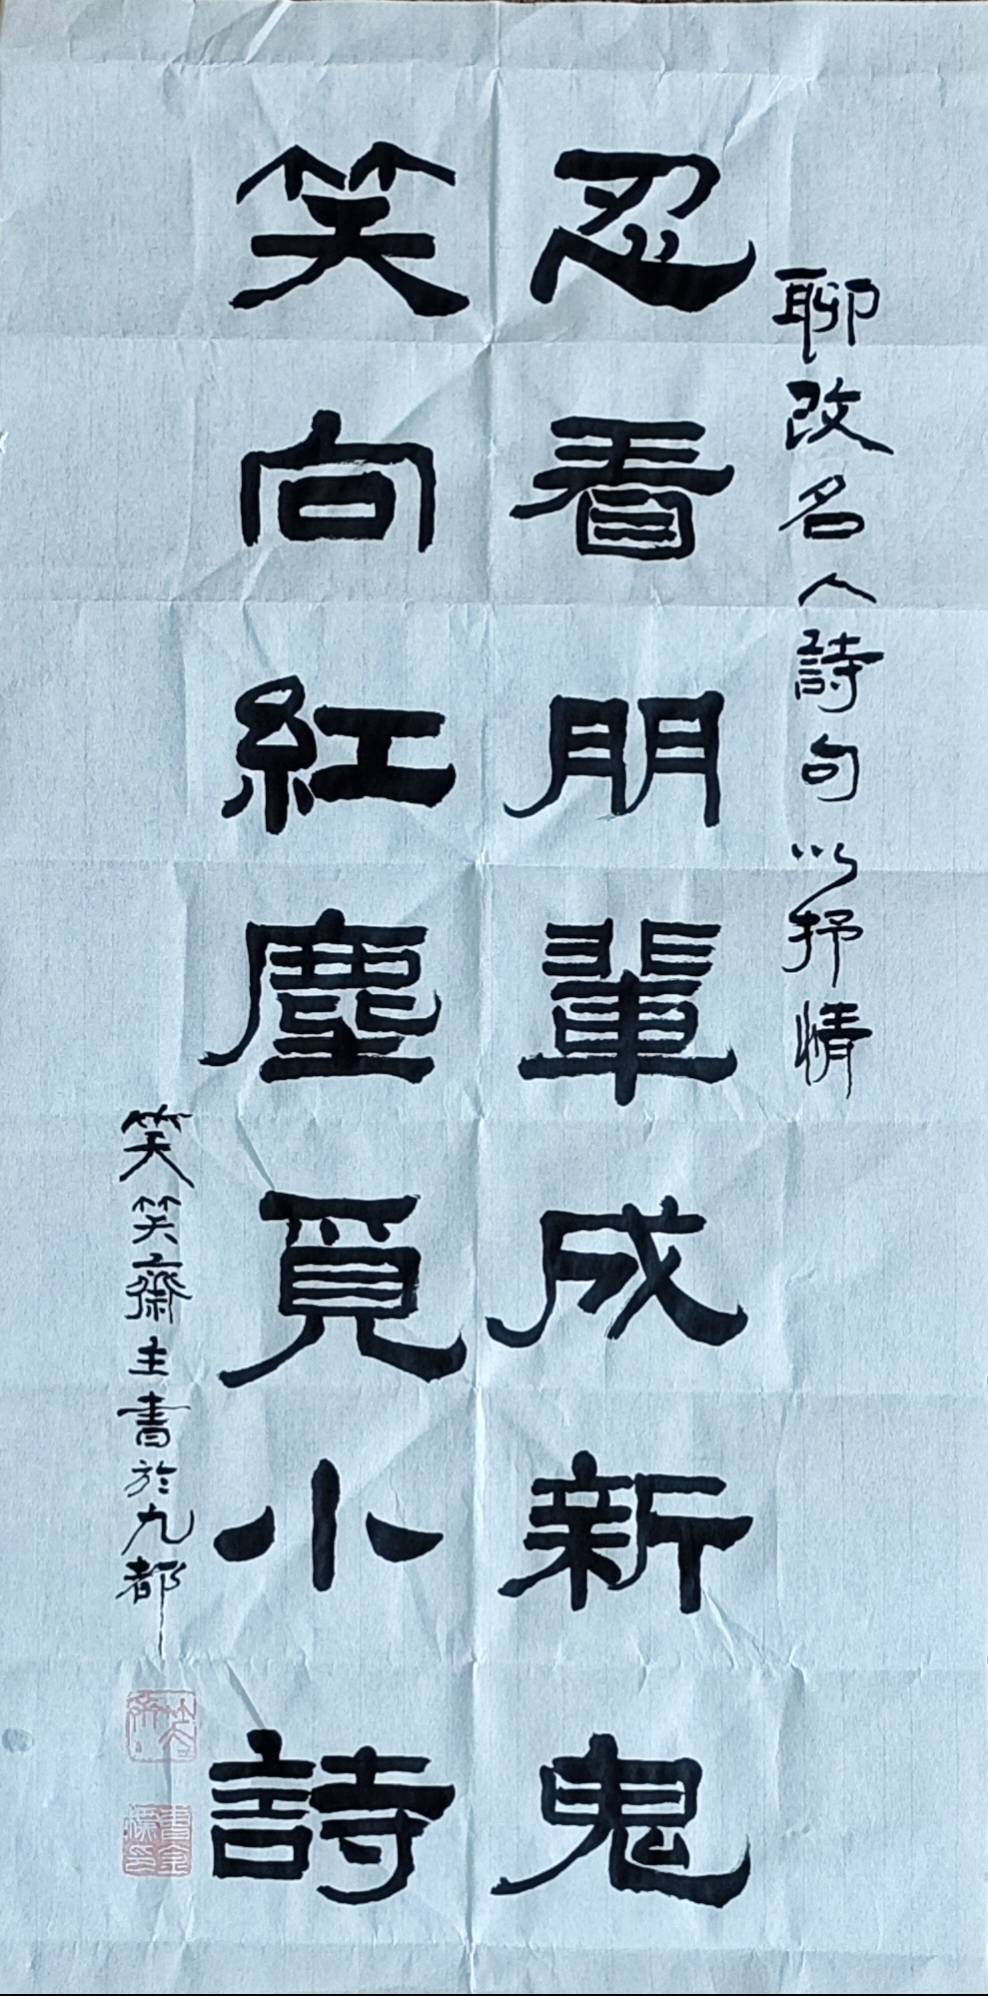 聊改名人詩句以抒情
忍看朋輩成新鬼
笑向紅塵覓小詩
笑笑齋主書於九都